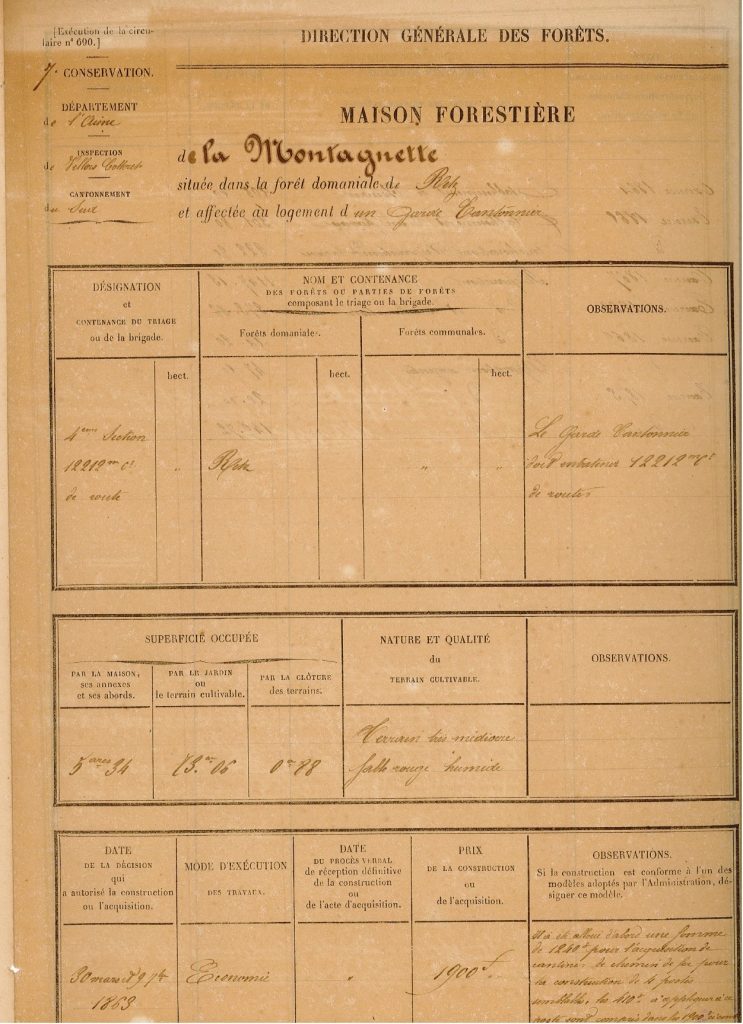 [Exécution de la circu-
laire n° 690.]
DIRECTION GÉNÉRALE DES FORÊTS.
7e CONSERVATION.
DÉPARTEMENT
de l'Aisne
INSPECTION
de Villers Cotterets
CANTONNEMENT
du Sud
MAISON FORESTIÈRE
de la Montagnette
située dans la forêt domaniale de Retz
et affectée au logement d'un garde Cantonnier
DÉSIGNATION
et
CONTENANCE DU TRIAGE
ou de la brigade.
NOM ET CONTENANCE
DES FORÊTS OU PARTIES DE FORÊTS
composant le triage ou la brigade.
Forêts domaniales.
Forêts communales.
OBSERVATIONS.
hect.
hect.
hect.
4eme Section
12212m Ct
de route
"
Retz
"
"
Le Garde Cantonnier
doit entretenir 12212m Ct
de routes
SUPERFICIE OCCUPÉE
PAR LA MAISON,
ses annexes
et ses abords.
PAR LE JARDIN
ou
le terrain cultivable.
PAR LA CLÔTURE
des terrains.
NATURE ET QUALITÉ
du
TERRAIN CULTIVABLE.
OBSERVATIONS.
5 ares 34
13 ar 06
0 ar 88
Terrain très médiocre
sable rouge humide
DATE
DE LA DÉCISION
qui
a autorisé la construction
ou l'acquisition.
MODE D'EXÉCUTION
DES TRAVAUX.
DATE
DU PROCÈS VERBAL
de réception définitive
de la construction
ou
de l'acte d'acquisition.
PRIX
DE LA CONSTRUCTION
ou
de l'acquisition.
OBSERVATIONS.
Si la construction est conforme à l'un des
modèles adoptés par l'Administration, dé-
signer ce modèle.
30 mars et 9 9bre
1863
Economie
"
1900f
Il a été alloué d'abord une somme
de 1240f pour l'acquisition de
cantines de chemin de fer pour
la construction de postes
semblables, les 410f à appliquer à ce
poste sont compris dans les 1900f